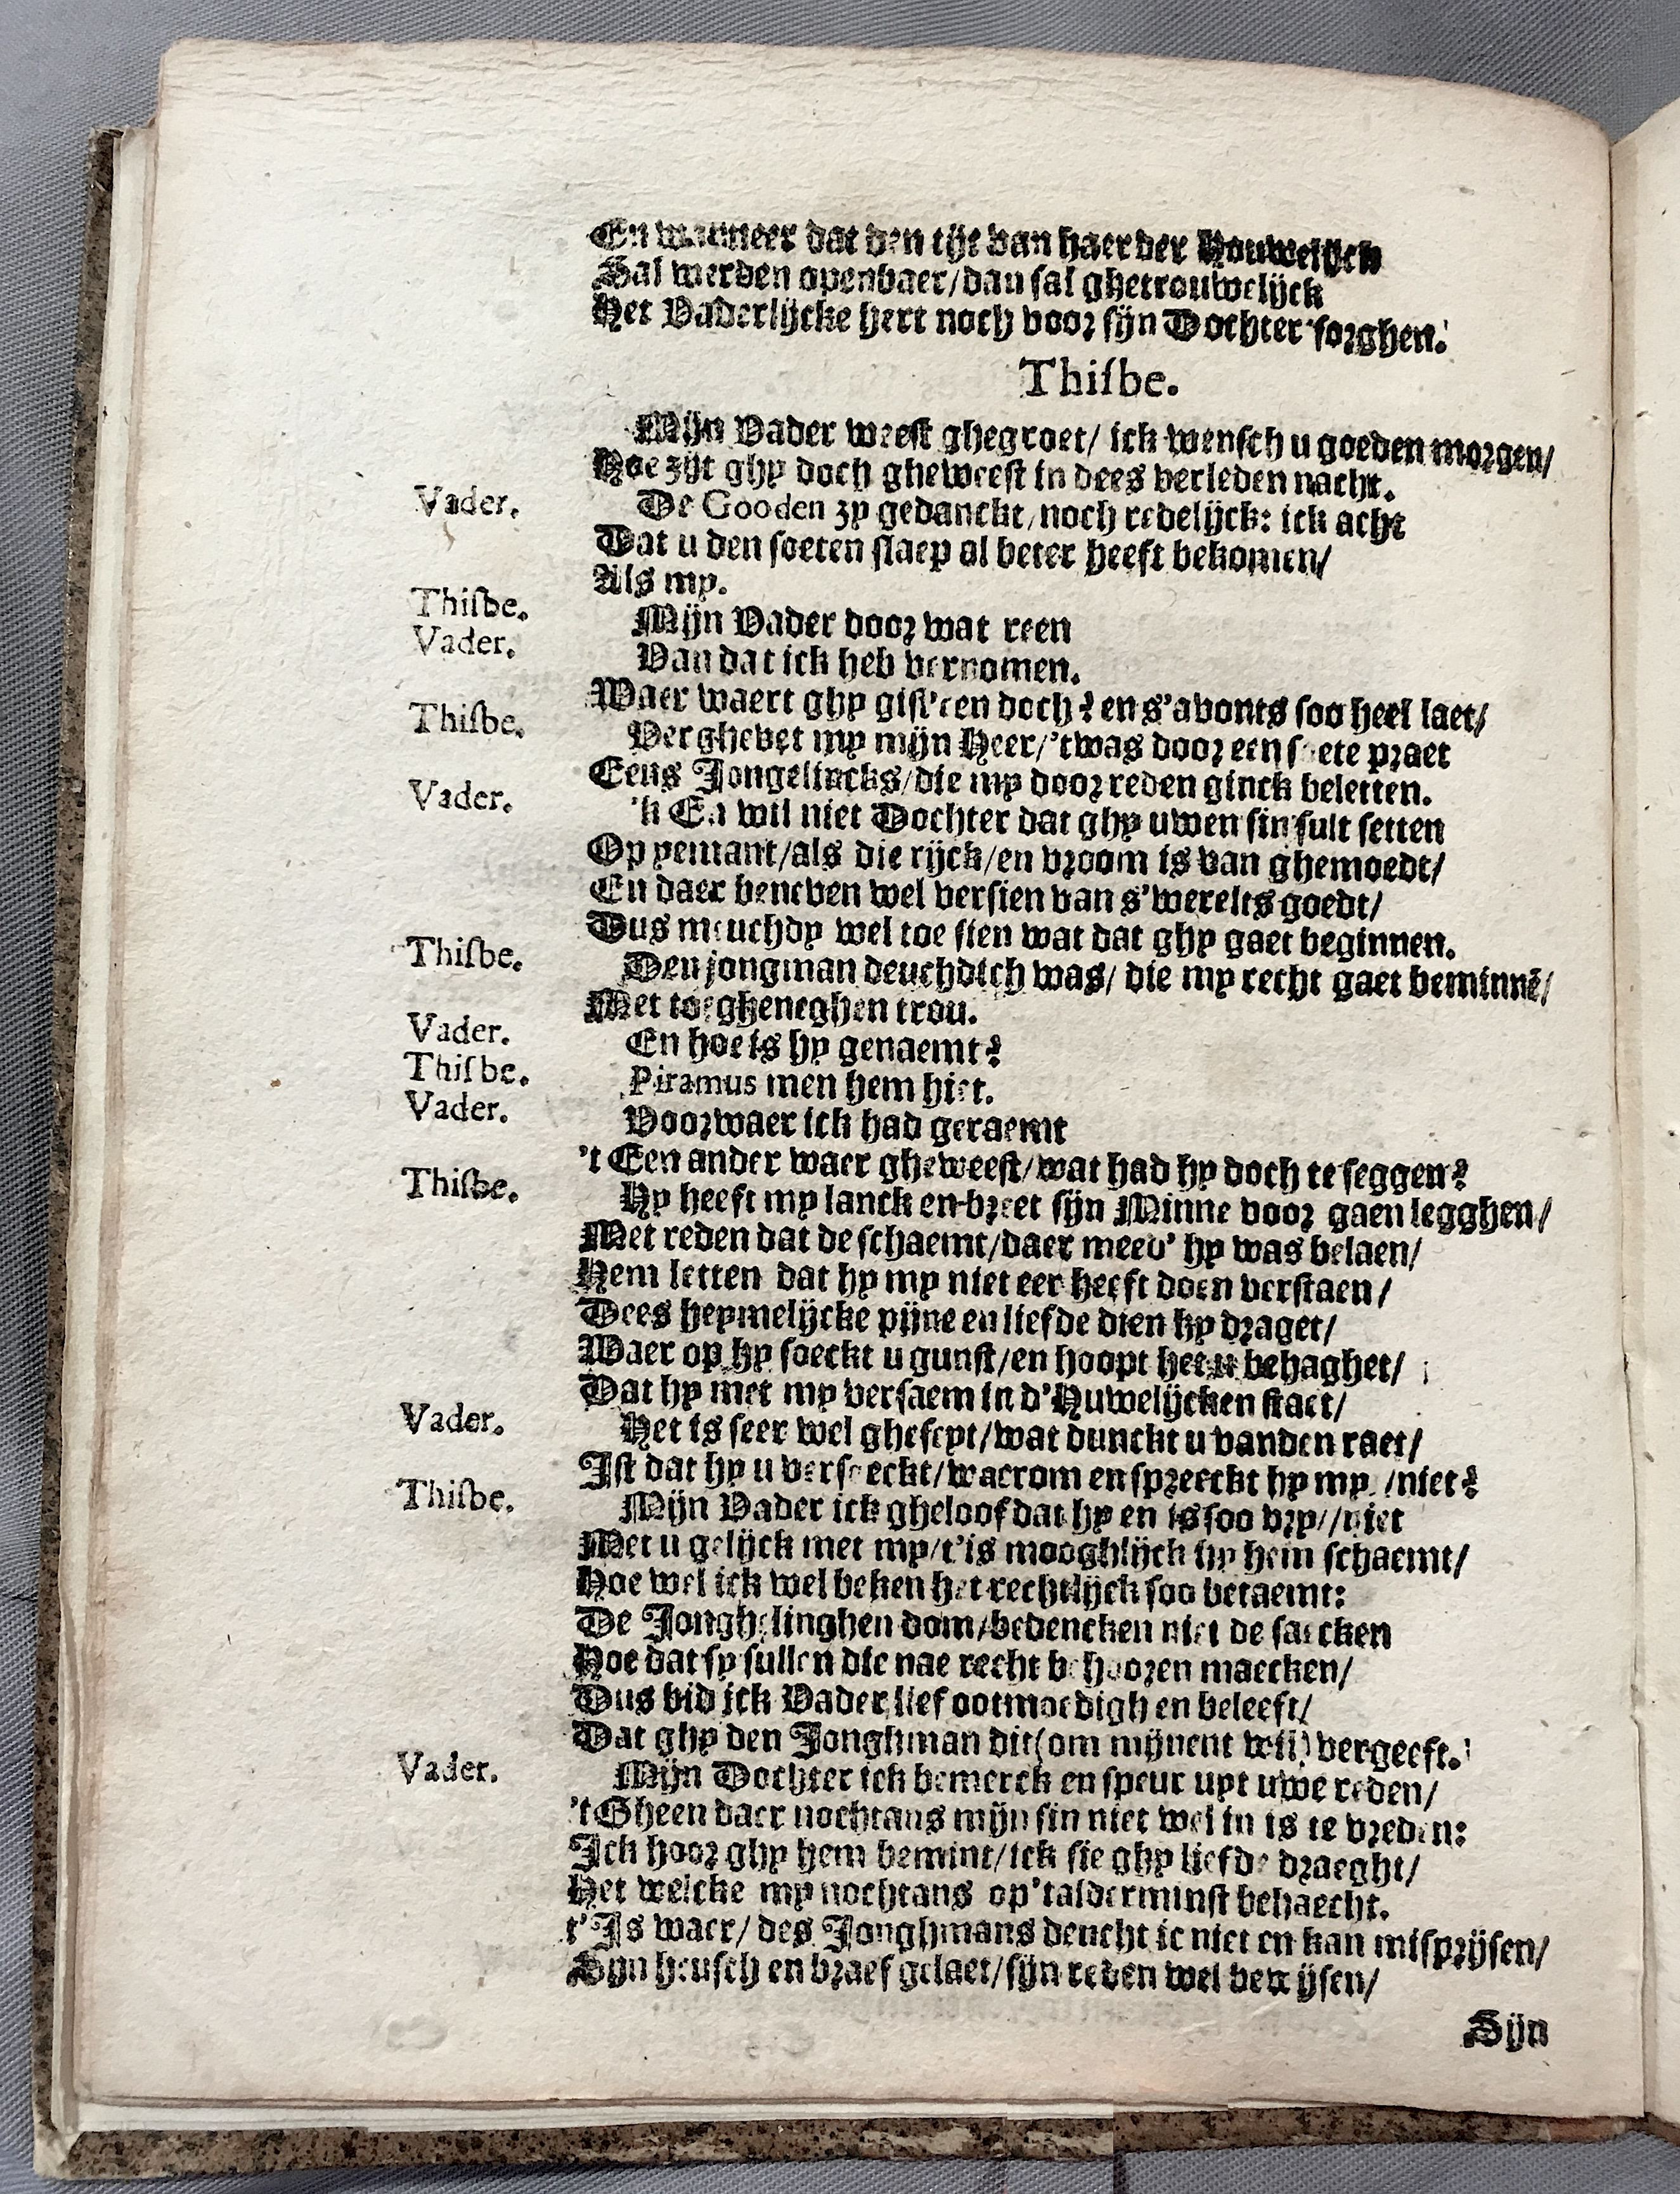 En wanneer dat den tijt van haer der Houwelijck
Sal werden openbaer/dan sal ghetrouwelijck
Het Vaderlijcke hert noch voor sijn Dochter sorghen.
Thiſbe.
Mijn Vader weest ghegroet/ ick wensch u goeden morgen/
Hoe zijt ghy doch gheweest in dees verleden nacht.
Vader. De Gooden zy gedanckt/noch redelijck: ick acht
Dat u den soeten slaep al beter heeft bekomen/
Als my.
Thiſbe. Mijn Vader door wat reen
Vader. Van dat ick heb vernomen.
Waer waert ghy gist'ren doch? en s'avonts soo heel laet/
Thiſbe. Verghevet my mijn Heer/'twas door een soete praet
Eens Jongelincks/die my door reden ginck beletten.
Vader. 'k En wil niet Dochter dat ghy uwen sin sult setten
Op yemant/als die rijck/en vroom is van ghemoedt/
En daer beneven wel versien van s'werelts goedt/
Dus meuchdy wel toe sien wat dat ghy gaet beginnen.
Thiſbe. Den jongman deuchdich was/ die my recht gaet beminnē/
Met toegheneghen trou.
Vader. En hoe is hy genaemt?
Thiſbe. Piramus men hem hiet.
Vader. Voorwaer ick had geraemt
't Een ander waer gheweest/wat had hy doch te seggen?
Thiſbe. Hy heeft my lanck en breet sijn Minne voor gaen legghen/
Met reden dat de schaemt/daer meed' hy was belaen/
Hem letten dat hy my niet eer heeft doen verstaen/
Dees heymelijcke pijne en liefde dien hy draget/
Waer op hy soeckt u gunst/en hoopt het u behaghet/
Dat hy met my versaem in d'Huwelijcken staet/
Vader. Het is seer wel gheseyt/wat dunckt u vanden raet/
Ist dat hy u versoeckt/waerom en spreeckt hy my /niet?
Thiſbe. Mijn Vader ick gheloof dat hy en is soo vry//niet
Met u gelijck met my/t'is mooghlijck hy hem schaemt/
Hoe wel ick wel beken het rechtlijck soo betaemt:
De Jonghelinghen dom/bedencken niet de saecken
Hoe dat sy sullen die nae recht behooren maecken/
Dus bid ick Vader lief ootmoedigh en beleeft/
Dat ghy den Jonghman dit(om mijnent wil) vergeeft.
Vader. Mijn Dochter ick bemerck en speur uyt uwe reden/
't Gheen daer nochtans mijn sin niet wel in is te vreden:
Ick hoor ghy hem bemint/ick sie ghy liefde draeght/
Het welcke my nochtans op'talderminst behaecht.
t'Is waer/ des Jonghmans deucht ic niet en kan misprijsen/
Sijn heusch en braef gelaet/sijn reden wel bewijsen/
Sijn